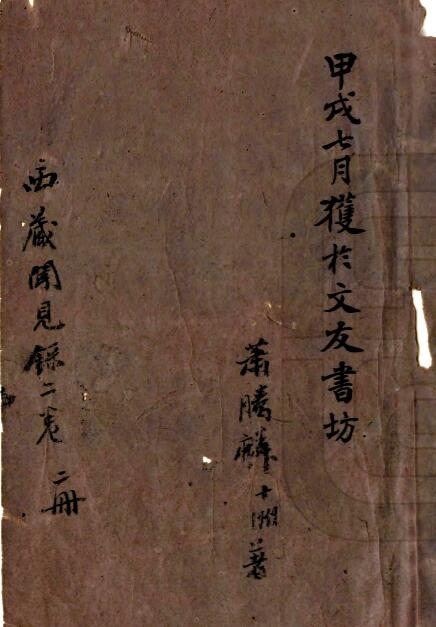 甲戌七月獲於文友書坊
蕭騰麟十洲著
西藏聞見錄二卷 二冊